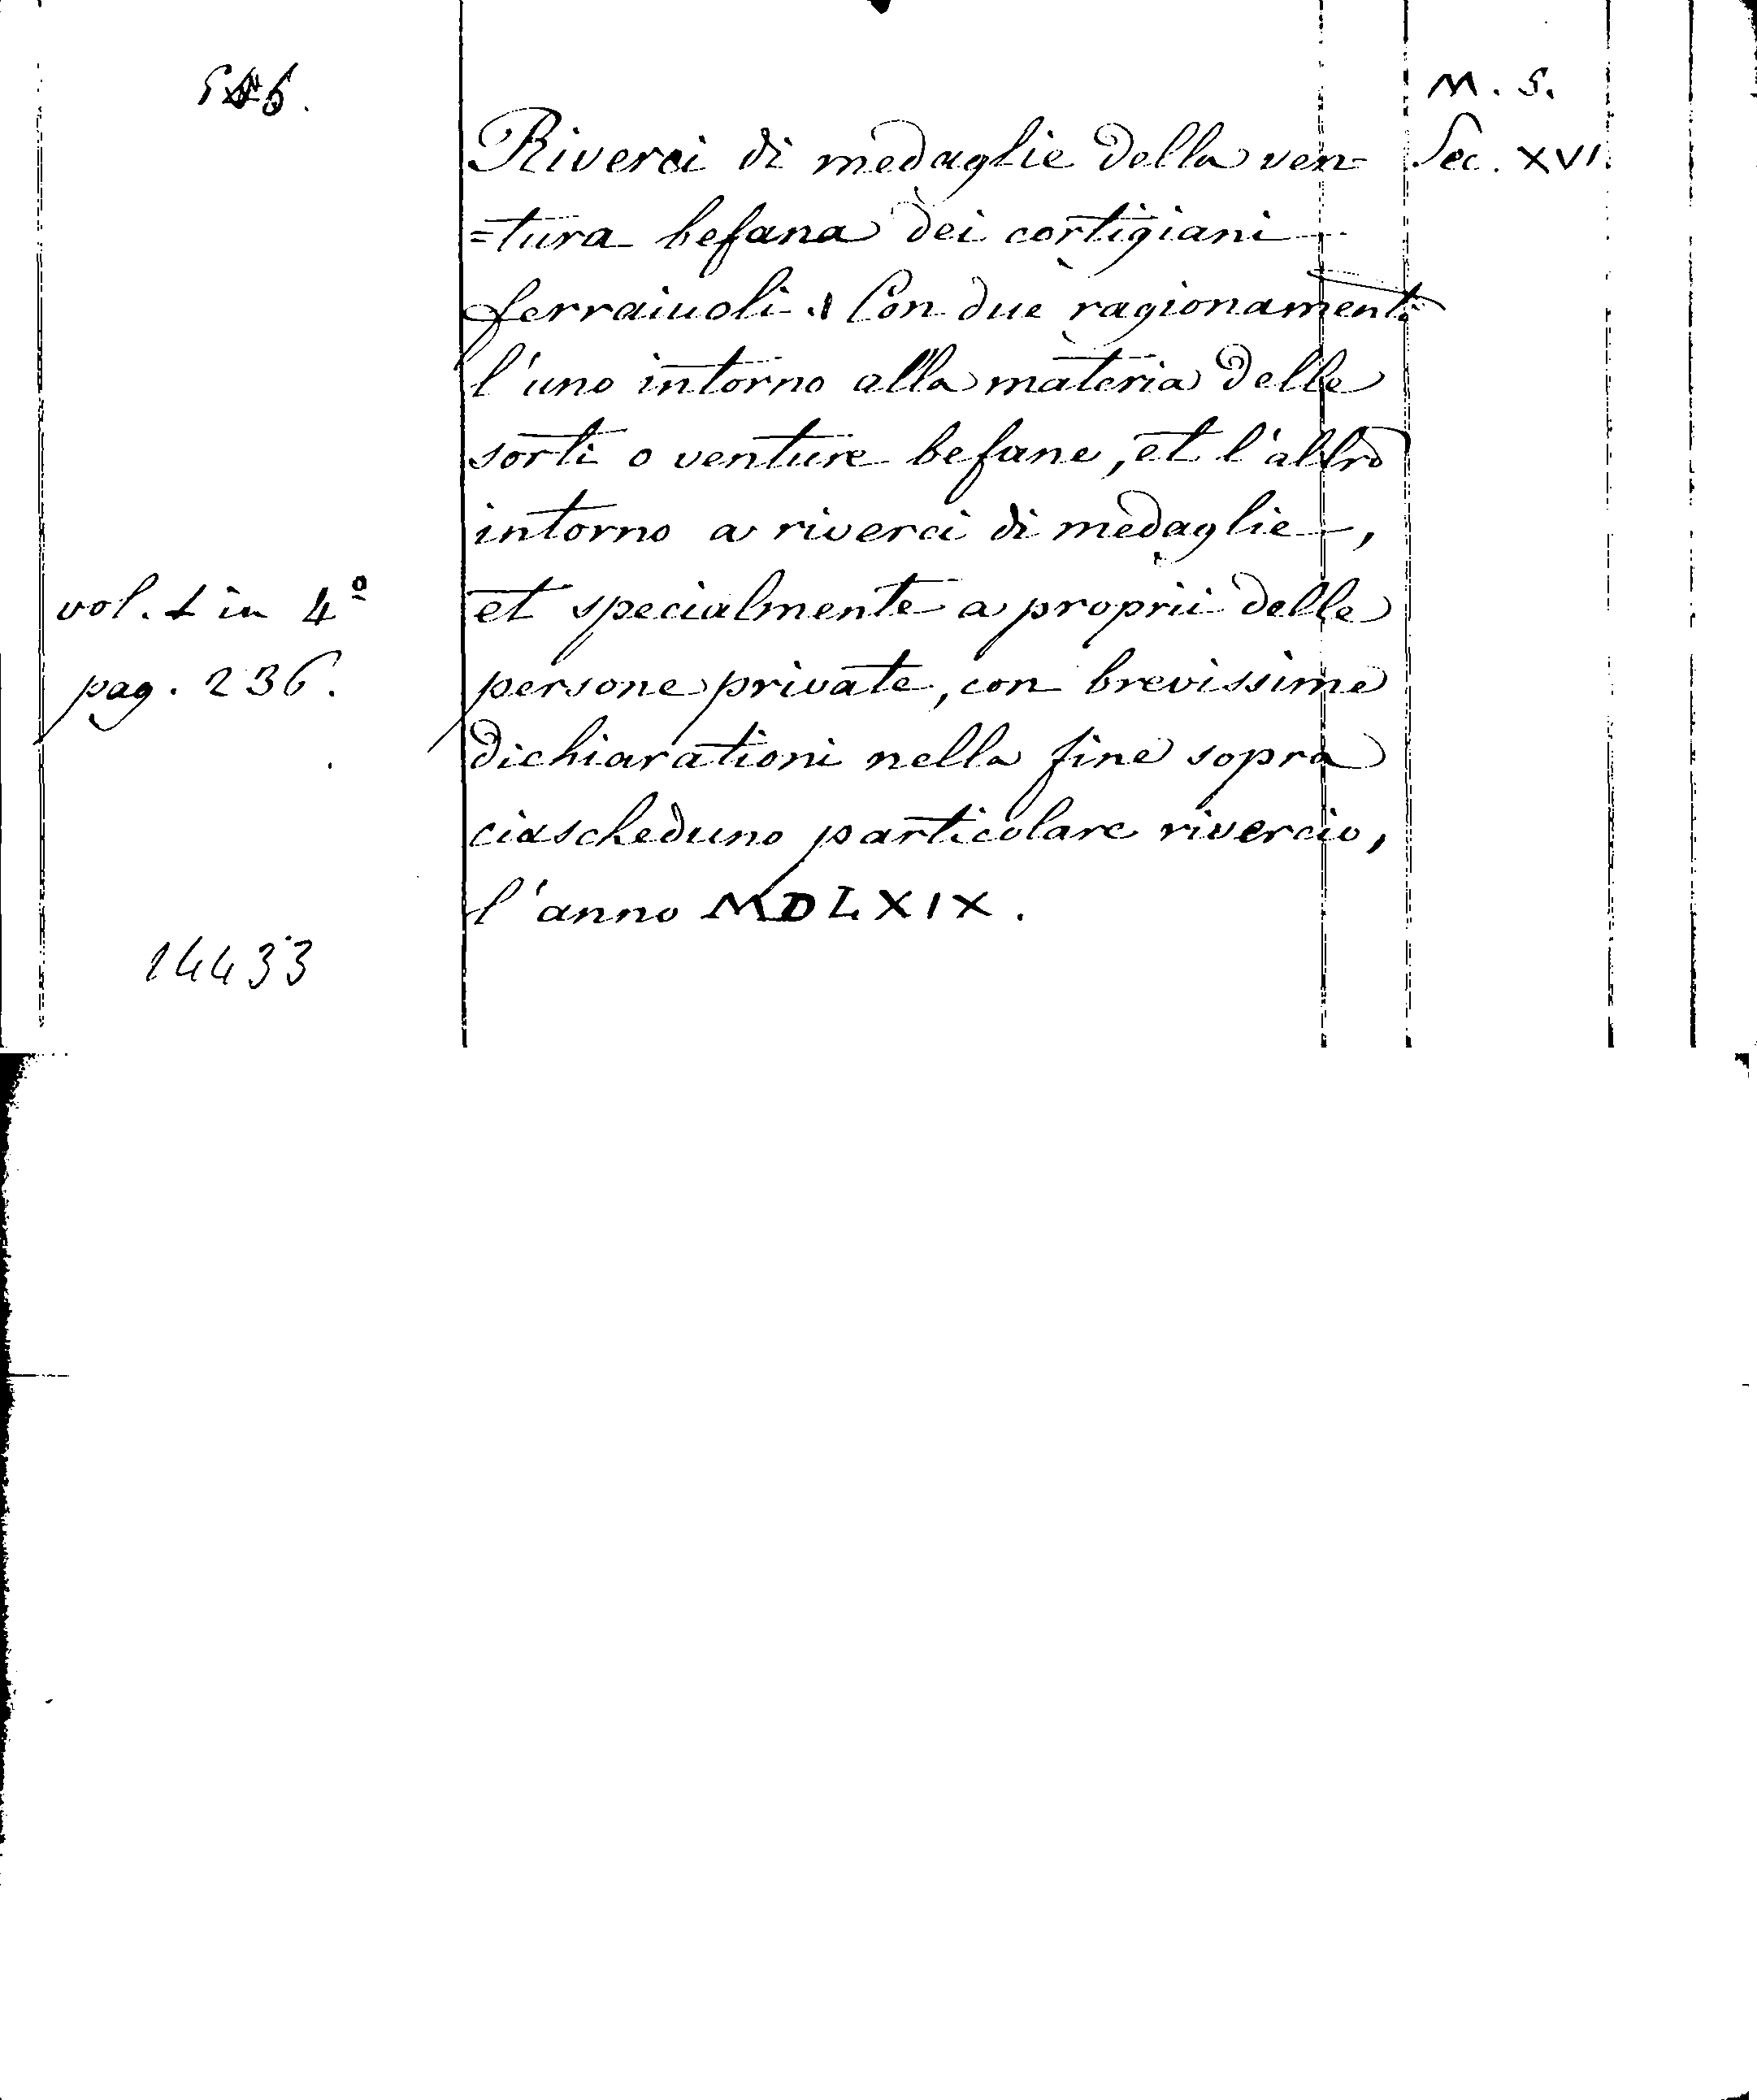 M. S.
Riverci di medaglie della ven= Sec. XVI.
=tura befana dei cortigiani
ferraiuoli. Con due ragionamenti
l'uno intorno alla materia delle
sorti o venture befane, et l'altro
intorno a riverci di medaglie,
vol. 1 in 4º et specialmente a proprii delle
pag. 236. persone private, con brevissime
dichiarationi nella fine sopra
ciascheduno particolare rivercio,
l'anno MDLXIX.
14433